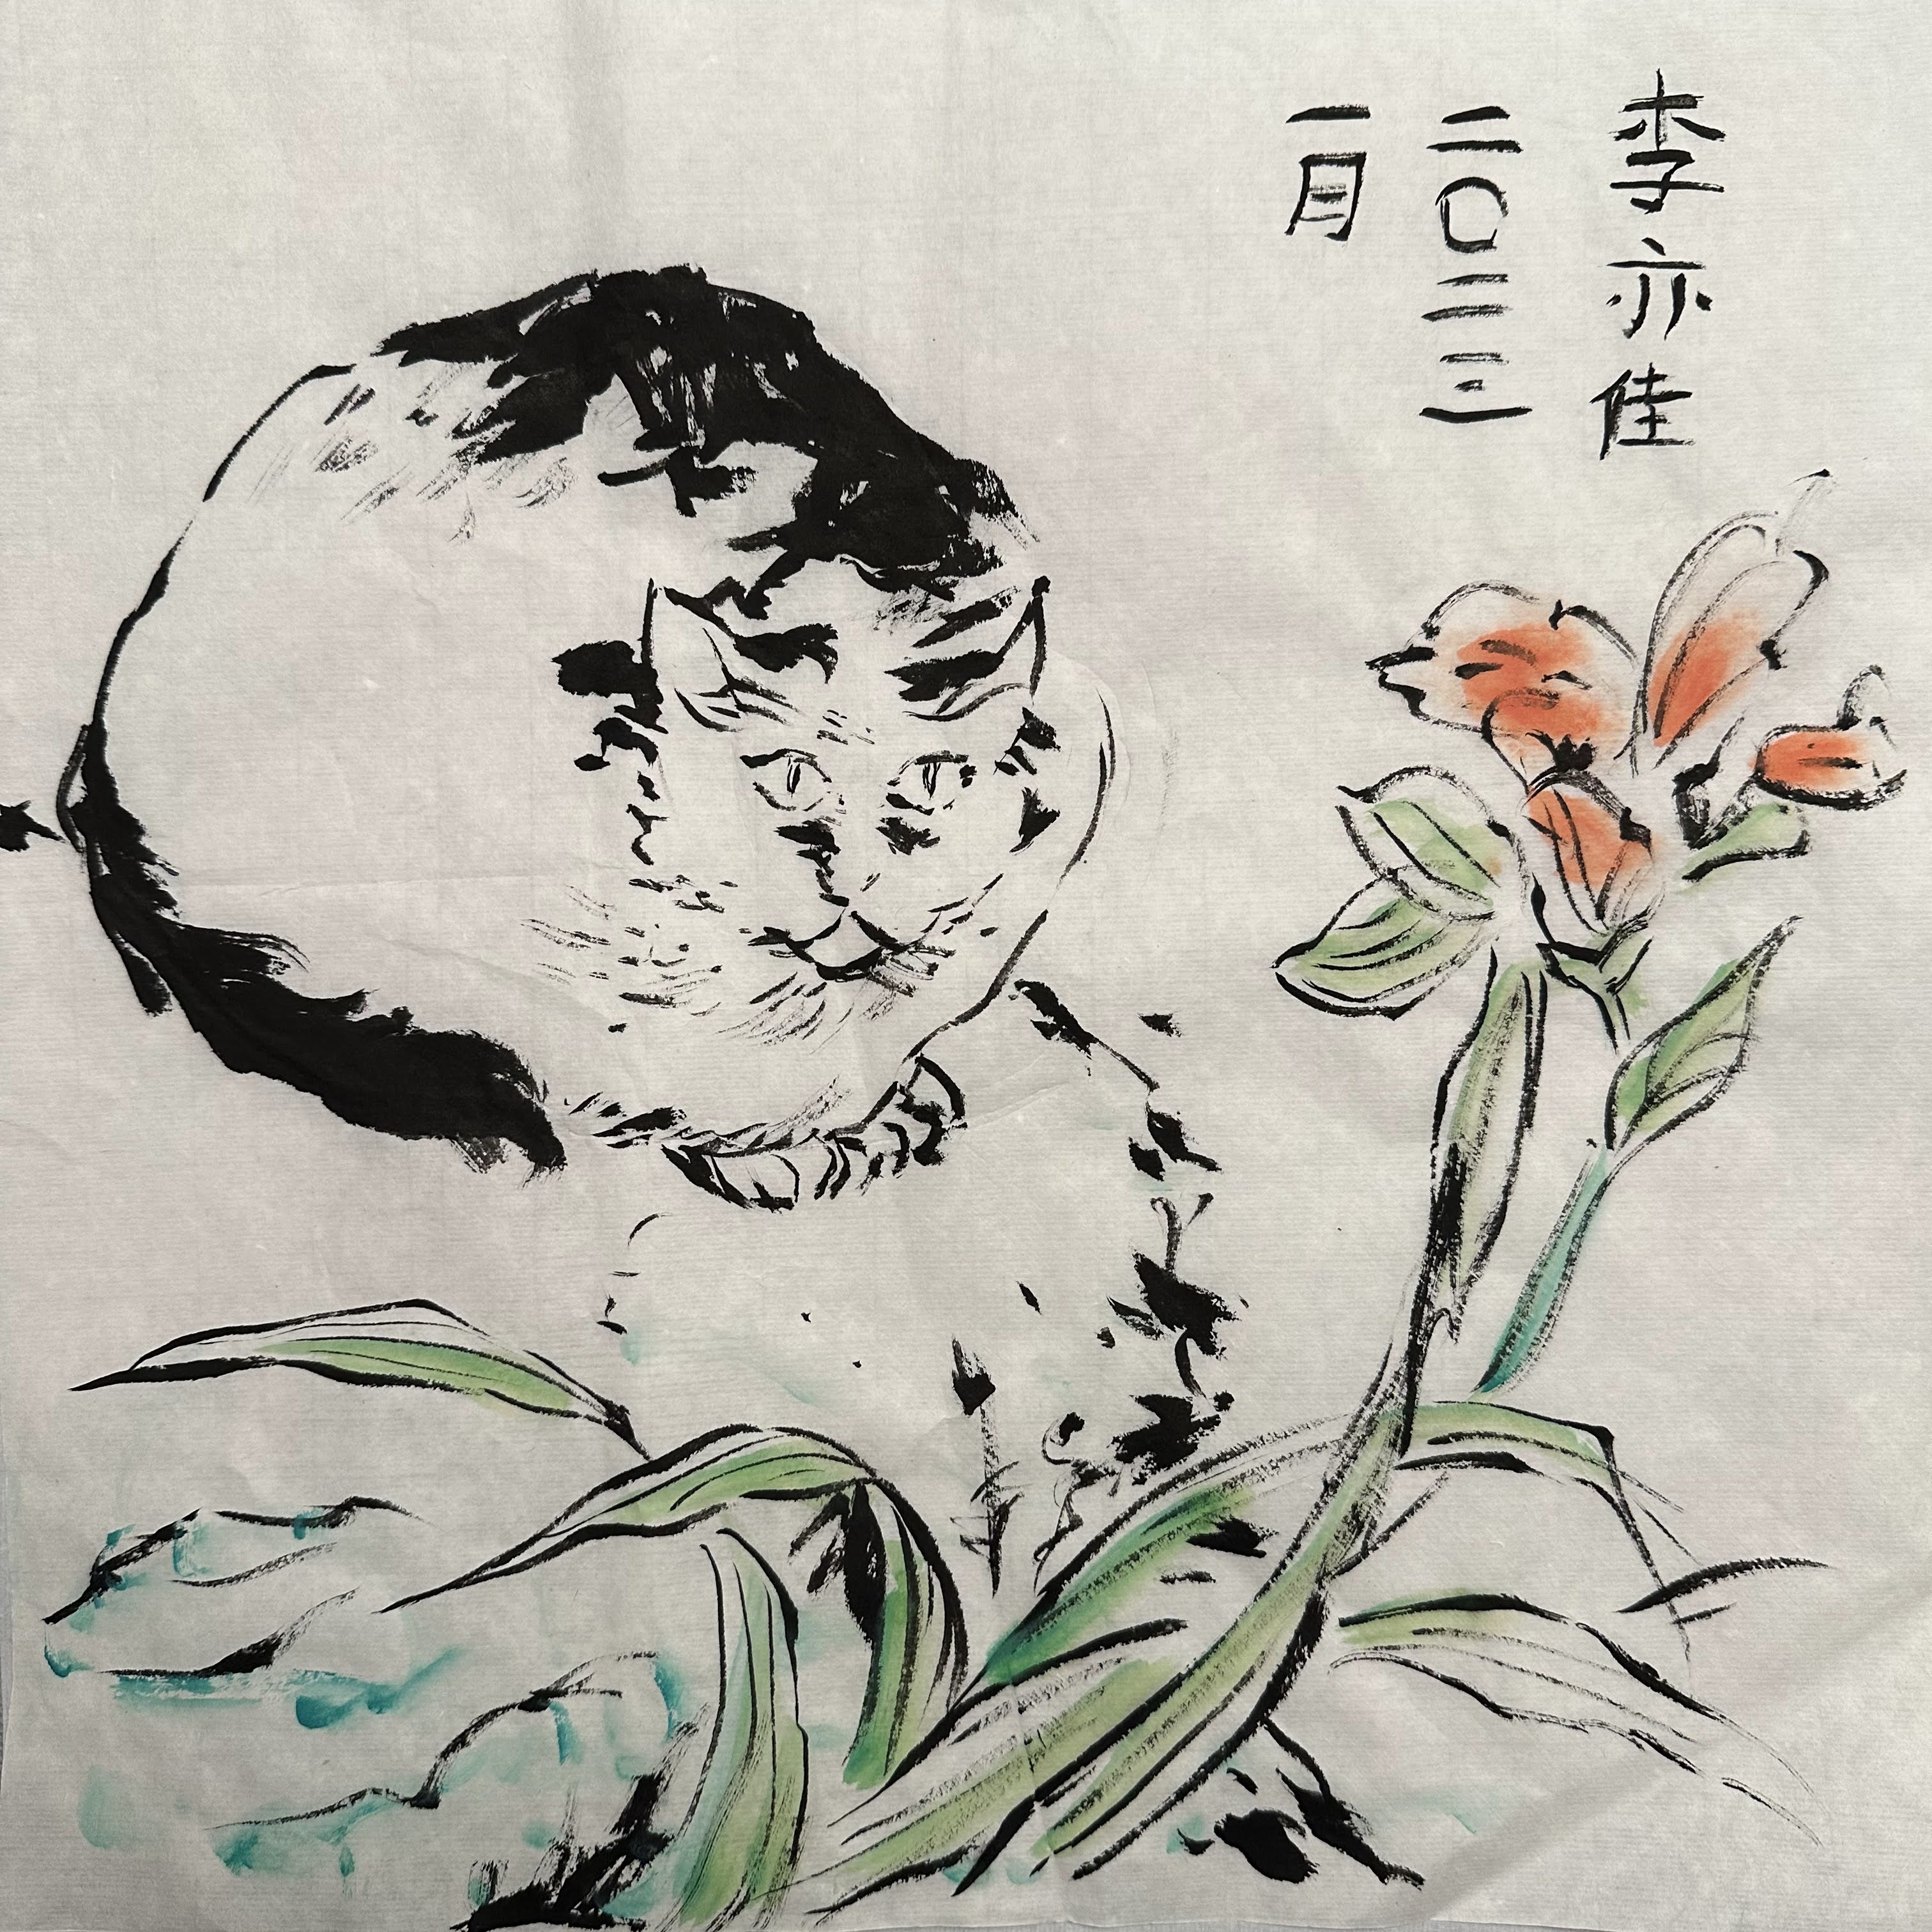 李亦佳
二〇二三
一月